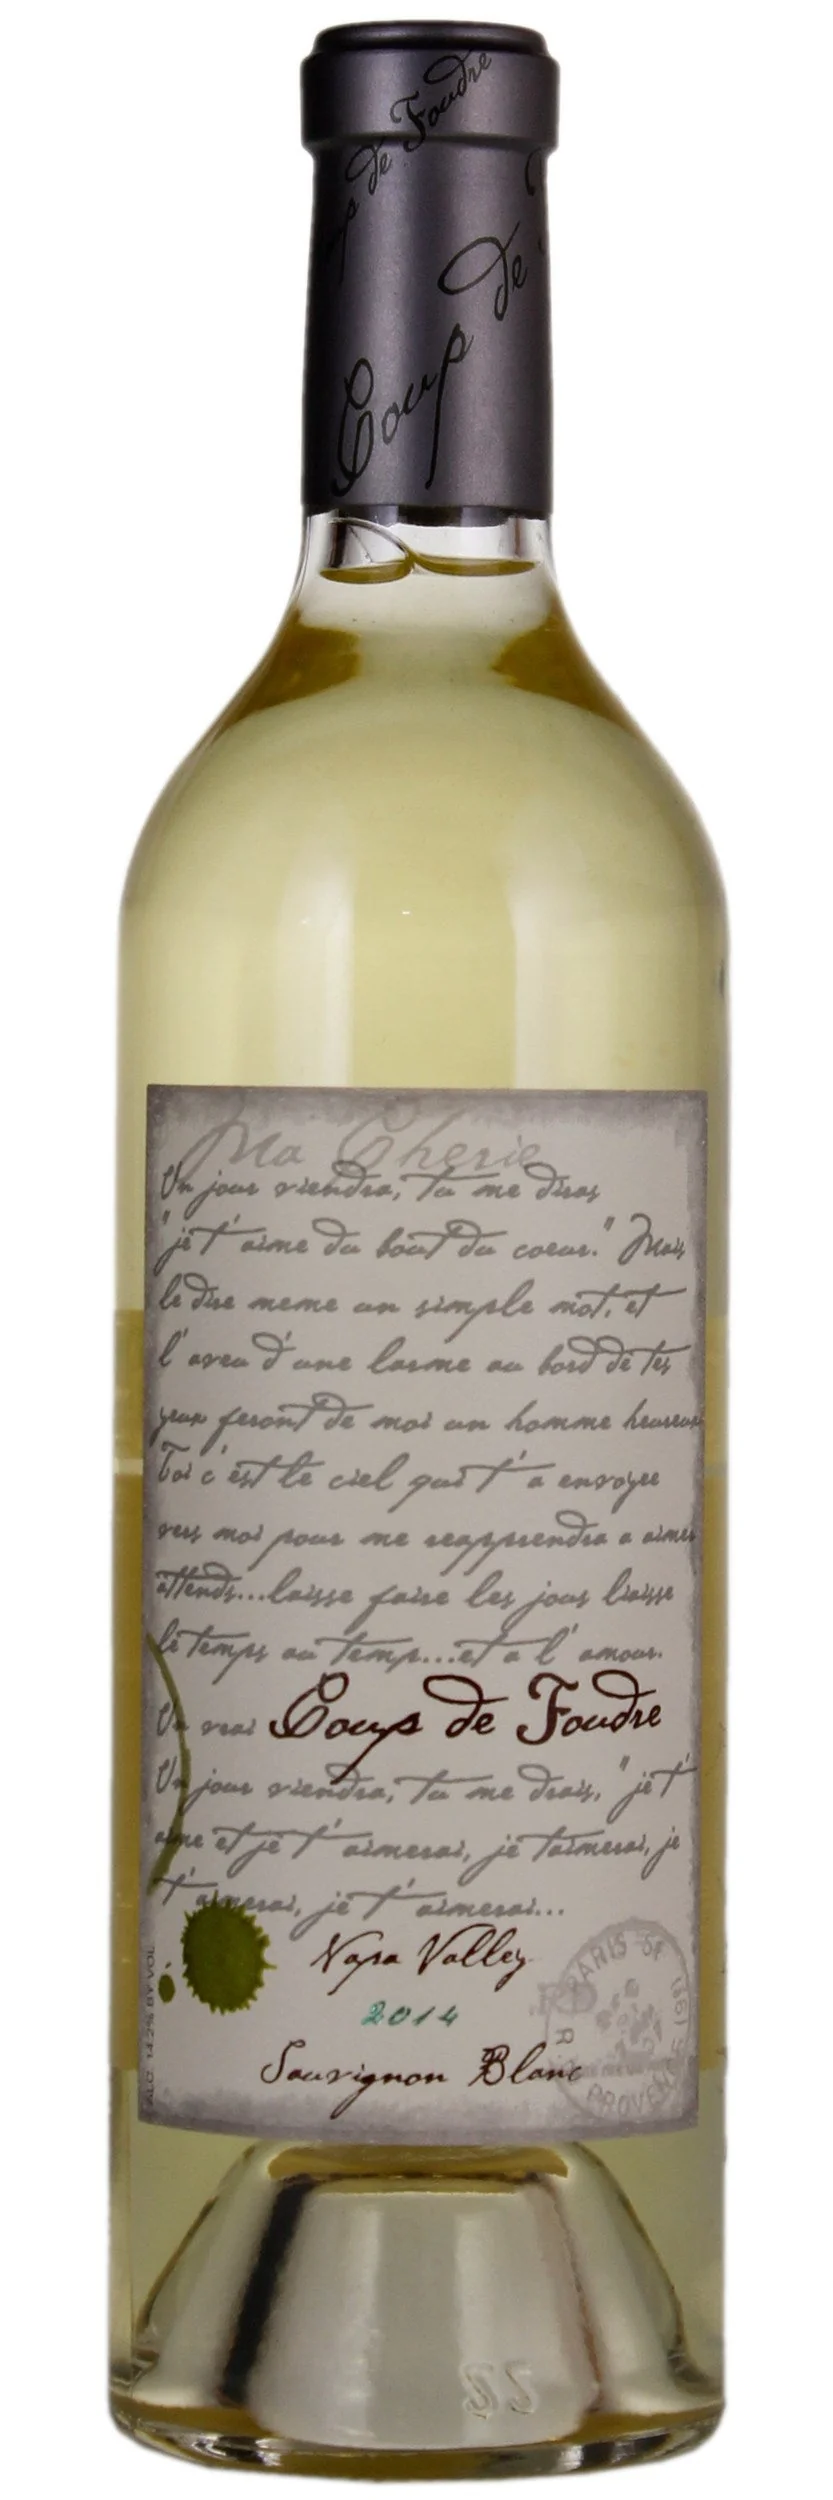 Coup de Foudre
Coup de
Ma Cherie
Un jour viendra, tu me diras
"je t'aime du bout du coeur." Mais
le dire meme un simple mot, et
l'aveu d'une larme au bord de tes
yeux feront de moi un homme heureux
Toi c'est le ciel qui t'a envoyee
vers moi pour me reapprendra a aimer
attends...laisse faire les jous liaisse
le temps au temp...et a l'amour.
Un vrai Coup de Foudre
Un jour viendra, tu me drais, "je t'
aime et je t'aimerai, je taimerai, je
t'aimerai, je t'aimerai...
Napa Valley
2014
Sauvignon Blanc
ALC 14.2% BY VOL
PARIS